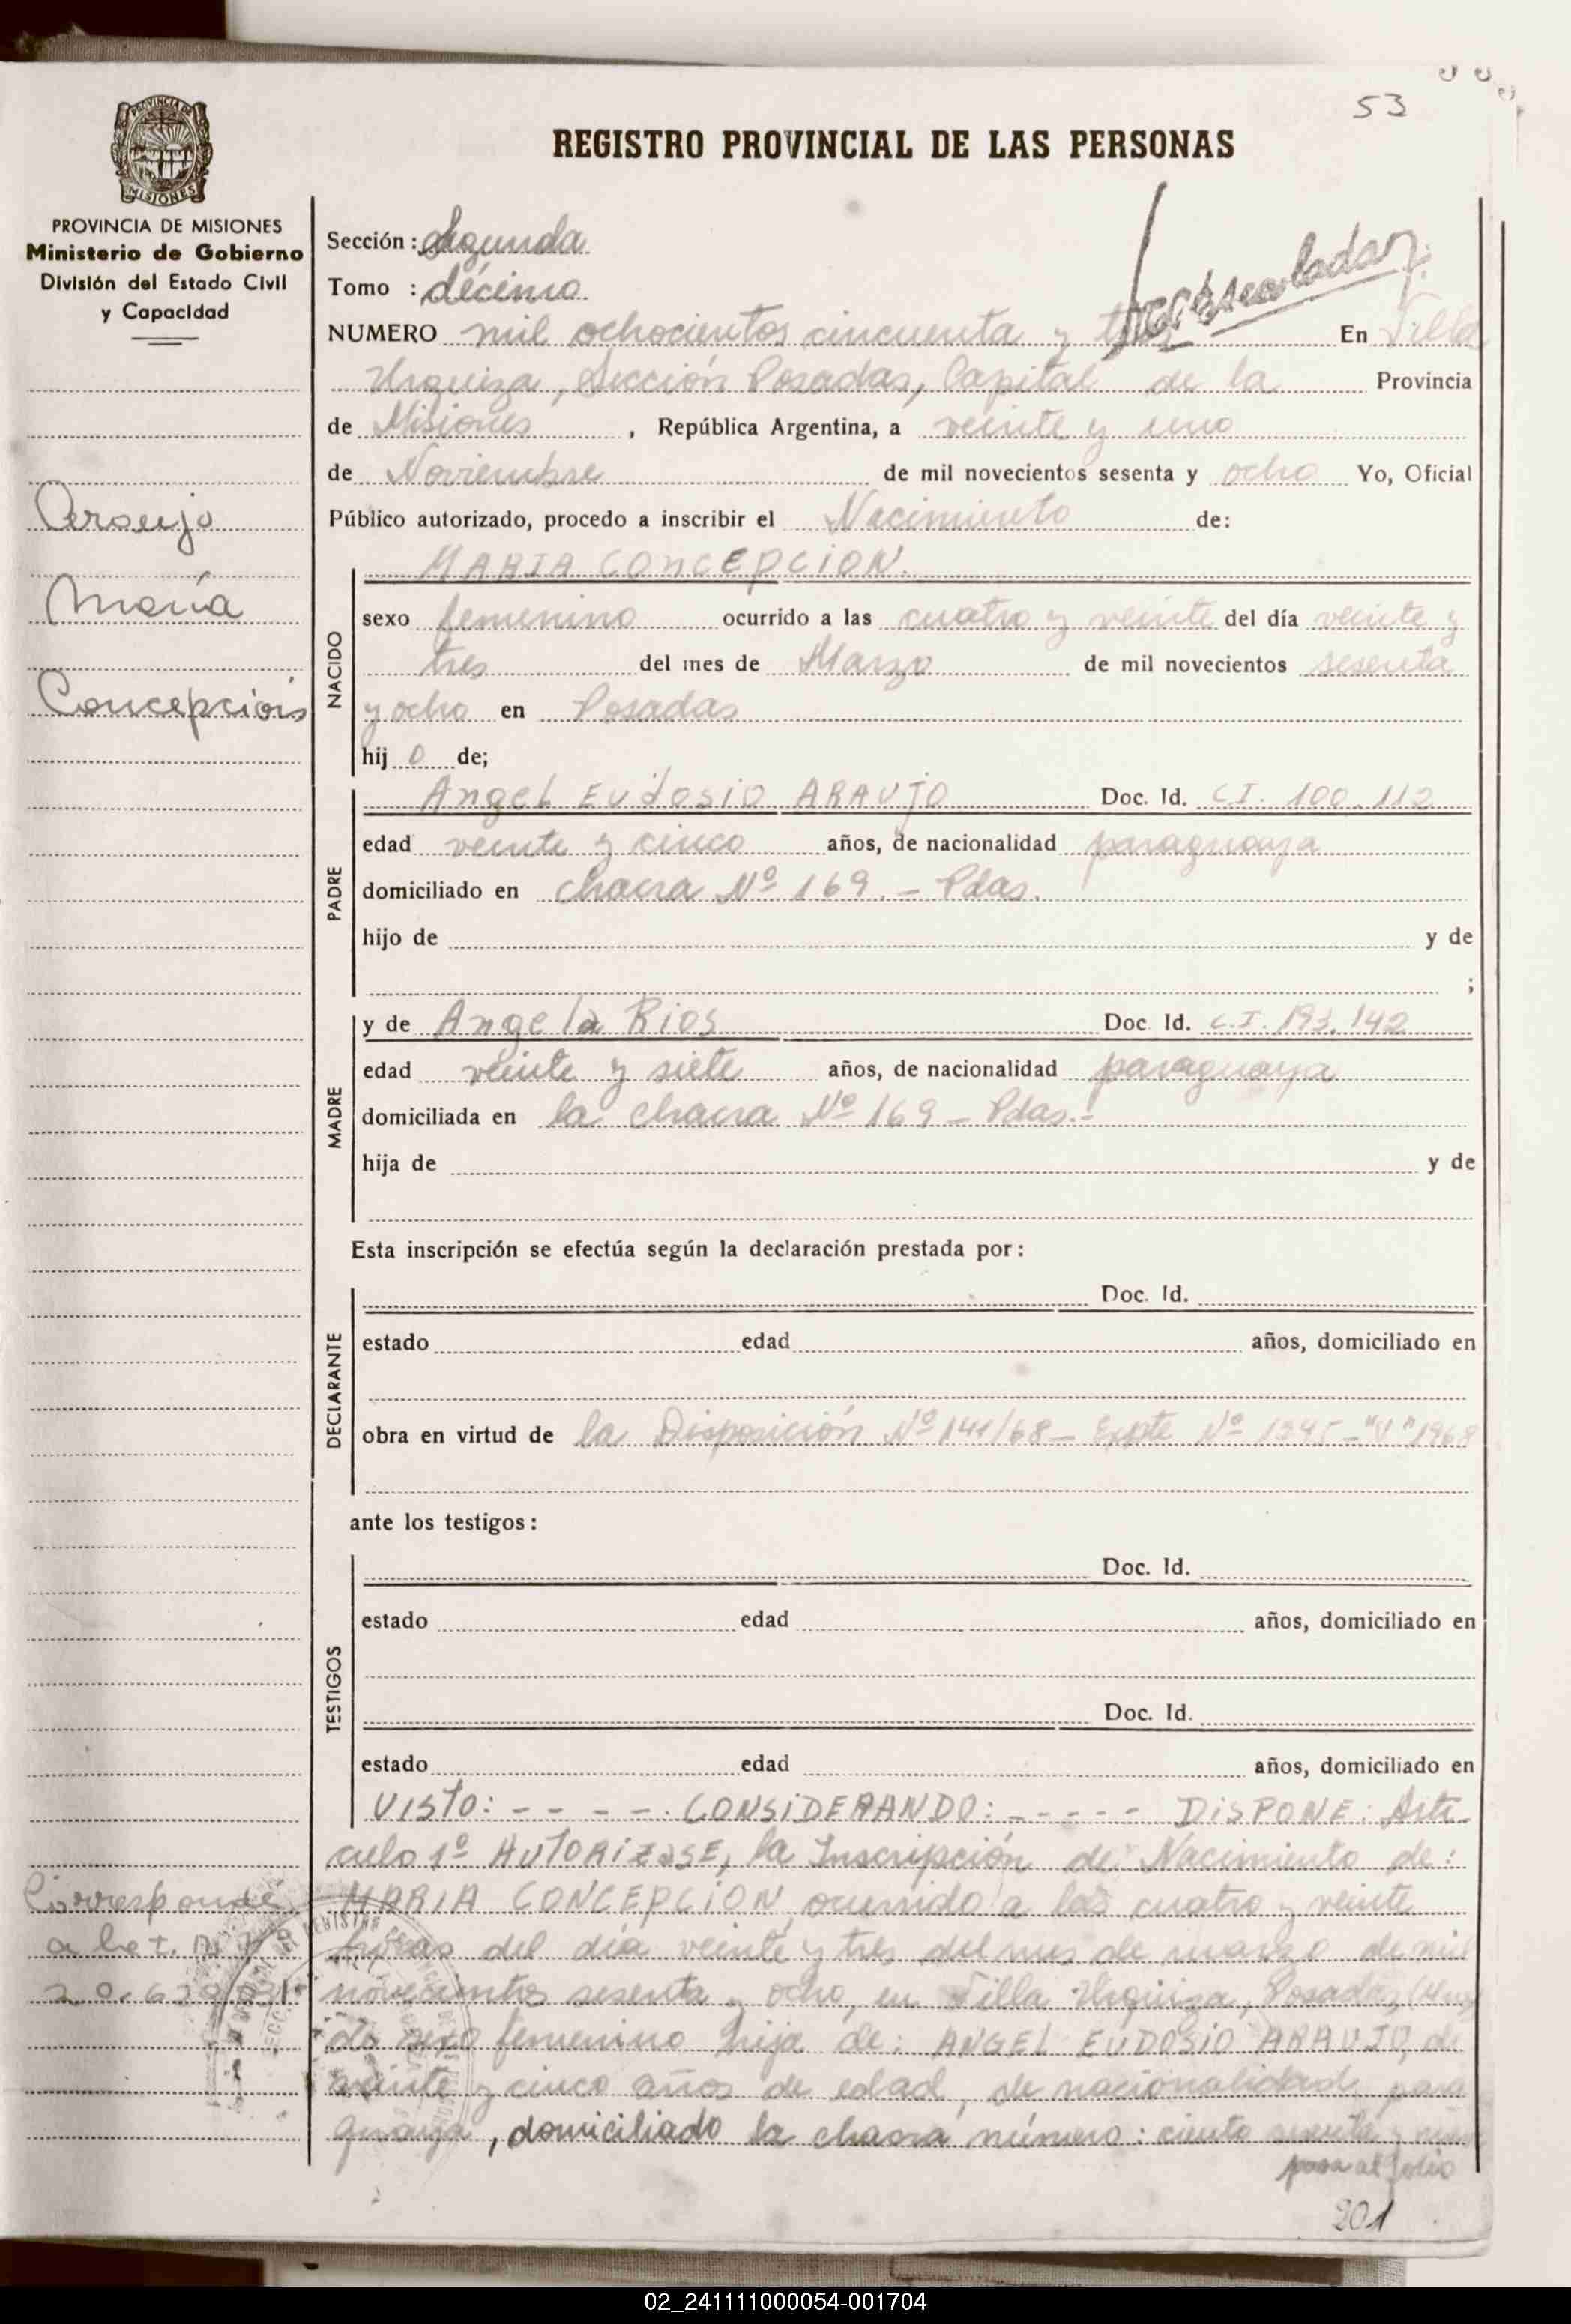 53
REGISTRO PROVINCIAL DE LAS PERSONAS
PROVINCIA DE
MISIONES
PROVINCIA DE MISIONES
Ministerio de Gobierno
División del Estado Civil
y Capacidad
Araujo
María
Concepción
Sección: Segunda
Tomo : décimo
NUMERO mil ochocientos cincuenta y tres En Villa
Urquiza, Sección Posadas, Capital de la Provincia
de Misiones, República Argentina, a veinte y uno
de Noviembre de mil novecientos sesenta y ocho Yo, Oficial
Público autorizado, procedo a inscribir el Nacimiento de:
NACIDO
MARIA CONCEPCION.
sexo femenino ocurrido a las cuatro y veinte del día veinte y
tres del mes de Marzo de mil novecientos sesenta
y ocho en Posadas
hij o de;
PADRE
Angel Eudosio ARAUJO Doc. Id. C.I. 100.112
edad veinte y cinco años, de nacionalidad paraguaya
domiciliado en chacra Nº 169. - Pdas.
hijo de y de
;
MADRE
y de Angela Rios Doc. Id. C.I. 193.142
edad veinte y siete años, de nacionalidad paraguaya
domiciliada en la chacra Nº 169 - Pdas.-
hija de y de
Esta inscripción se efectúa según la declaración prestada por:
DECLARANTE
Doc. Id.
estado edad años, domiciliado en
obra en virtud de la Disposición Nº 141/68 - Expte Nº "V" 1968
ante los testigos:
TESTIGOS
Doc. Id.
estado edad años, domiciliado en
Doc. Id.
estado edad años, domiciliado en
VISTO: - - - -. CONSIDERANDO: - - - - - DISPONE: Artí-
culo 1º AUTORIZASE, la Inscripción de Nacimiento de:
MARIA CONCEPCION, ocurrido a las cuatro y veinte
horas del día veinte y tres del mes de marzo de mil
novecientos sesenta y ocho, en Villa Urquiza, Posadas,
de sexo femenino hija de: ANGEL EUDOSIO ARAUJO, de
veinte y cinco años de edad, de nacionalidad para
guaya, domiciliado la chacra número: ciento sesenta y
pasa al folio
201
Corresponde
a la
02_241111000054-001704